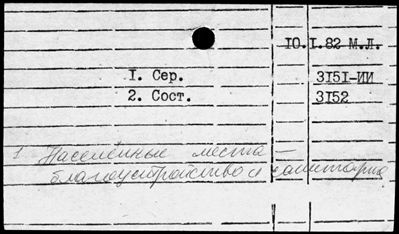 10.I.82 М.Л.
1. Сер. 3151-ИИ
2. Сост. 3152
1 Населённые места —
благоустройство и санитария